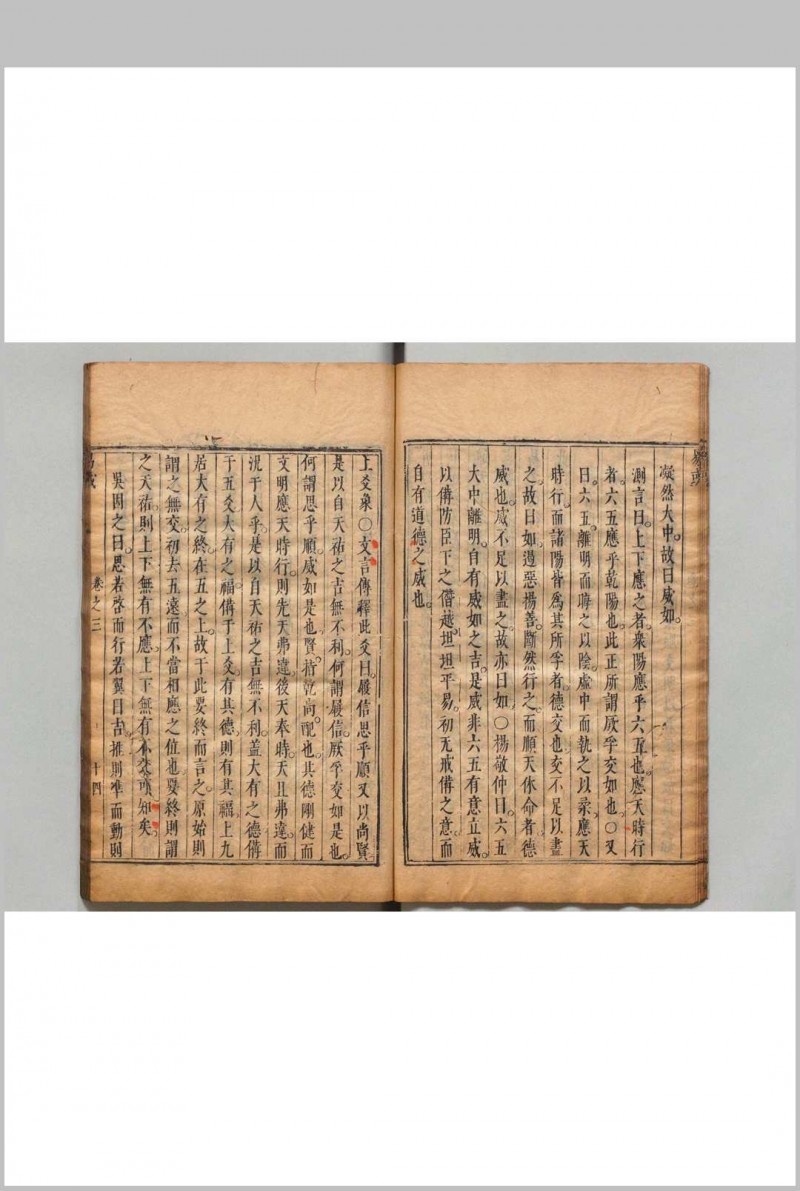 凝然大中。故曰威如。
淵言曰。上下應之者。衆陽應乎六五也。應天時行
者。六五應乎乾陽也。此正所謂厥孚交如也。〇又
曰。六五。離明而晦之以陰。虛中而執之以柔。應天
時行。而諸陽皆爲其所孚者。德交也。交不足以盡
之。故曰如。遏惡揚善。斷然行之。而順天休命者。德
威也。威不足以盡之。故亦曰如〇揚敬仲曰。六五
大中離明。自有威如之吉。是威非六五有意立威。
以僃防臣下之僭越。坦坦平易。初无戒僃之意。而
自有道德之威也。
上爻象〇文言傳釋此爻曰。履信思乎順。又以尚賢。
是以自天祐之。吉無不利。何謂履信。厥孚交如是也。
何謂思乎順。威如是也。賢。指乾。尚。配也。其德剛健而
文明。應天時行。則先天弗違。後天奉時。天且弗違。而
況于人乎。是以自天祐之。吉無不利。蓋大有之德僃
于五爻。大有之福僃于上爻。有其德則有其福。上九
居大有之終。在五之上。故于此要終而言之。原始則
謂之無交。初去五遠。而不當相應之位也。要終則謂
之天祐。則上下無有不應。上下無有不交。可知矣。
吳因之曰。思若啓而行若翼曰吉。推則準而動則
卷之三
十四